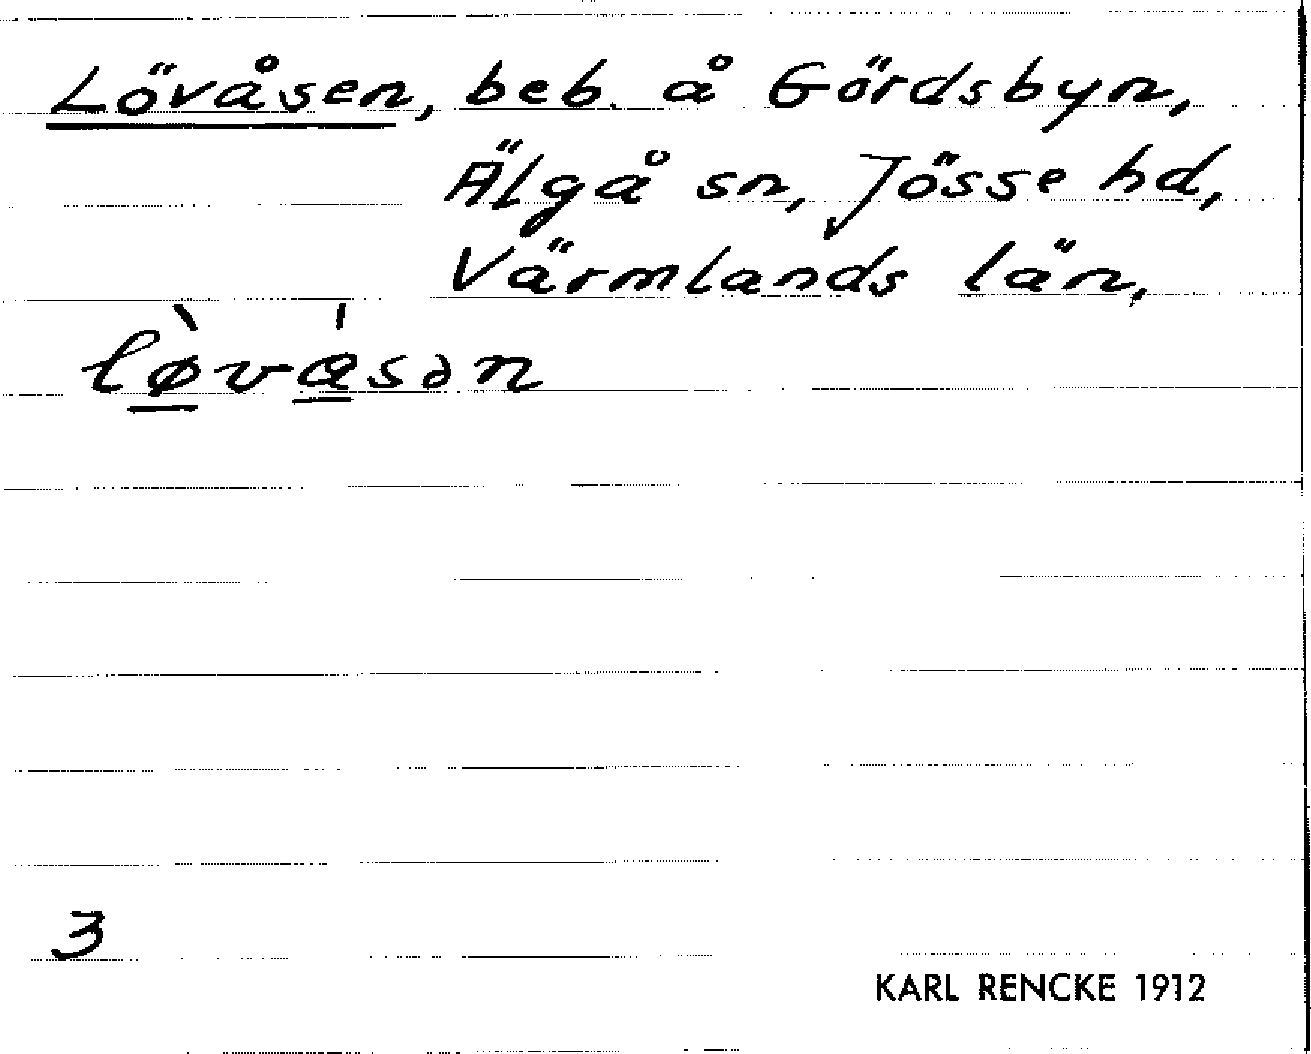 Lövåsen, beb. å Gördsbyn,
Älgå sn, Jösse hd,
Värmlands län,
lø̀vásən
3
KARL RENCKE 1912